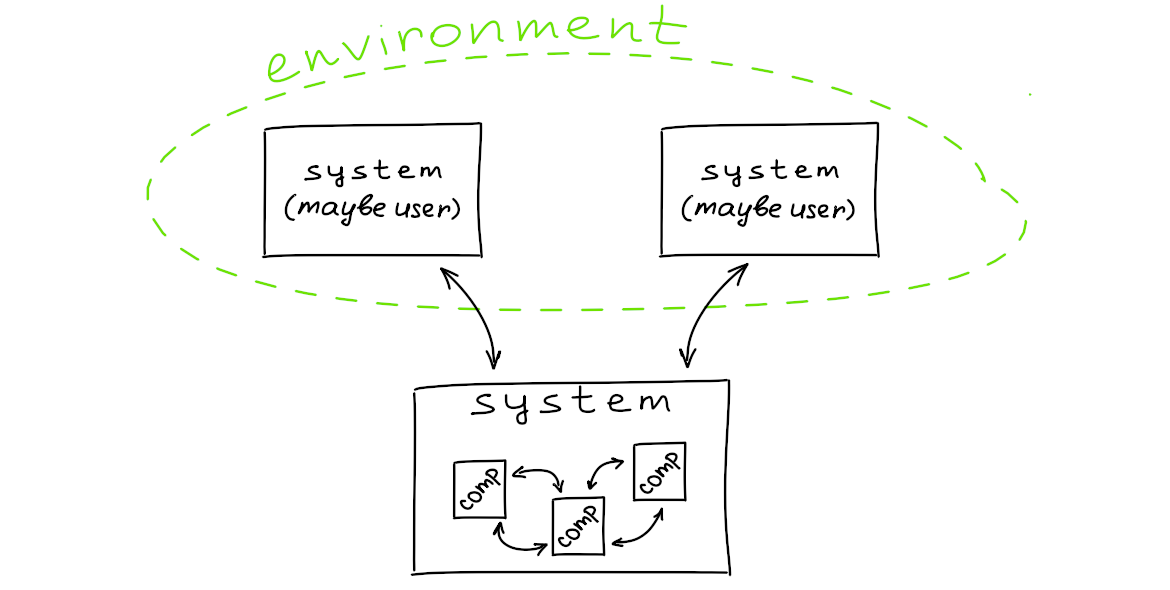 environment
system
(maybe user)
system
(maybe user)
system
comp
comp
comp